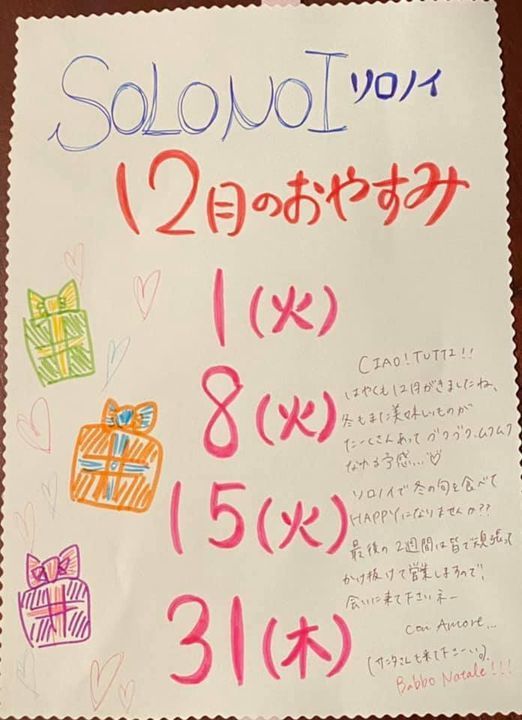 SOLONOI ソロノイ
12月のおやすみ
1(火)
8(火)
15(火)
31(木)
CIAO! TUTTI!!
はやくも12月がきましたね、
冬もまた美味しいものが
たーくさんあってブクブク、ムクムク
なれる予感…♡
ソロノイで冬の旬を食べて
HAPPYになりませんか??
最後の2週間は皆で頑張って
かけ抜けて営業しまるので!
会いに来て下さいネー
con Amore...
(サンタさんも来て下さーい。)
Babbo Natale!!!